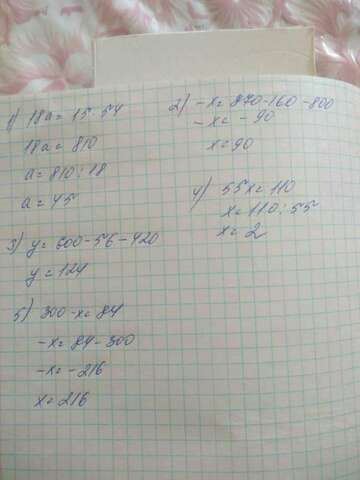 1) 18a = 15 · 54
18a = 810
a = 810 : 18
a = 45
2) -x = 870 - 160 - 800
-x = - 90
x = 90
3) y = 600 - 56 - 420
y = 124
4) 55x = 110
x = 110 : 55
x = 2
5) 300 - x = 84
-x = 84 - 300
-x = - 216
x = 216